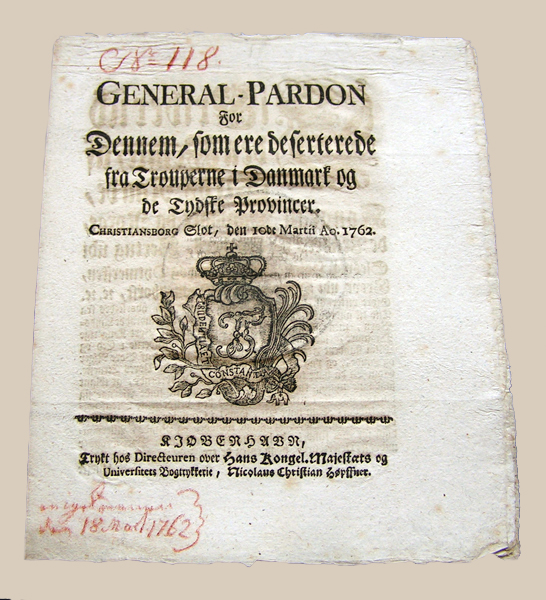 No 118.
GENERAL-PARDON
For
Dennem, som ere deserterede
fra Trouperne i Danmark og
de Tydske Provincer.
CHRISTIANSBORG Slot, den 10de Martii Ao. 1762.
PRUDENTIA ET
CONSTANTIA
KIØBENHAVN,
Trykt hos Directeuren over Hans Kongel. Majestæts og
Universitets Bogtrykkerie, Nicolaus Christian Høpffner.
den 18 Mart. 1762